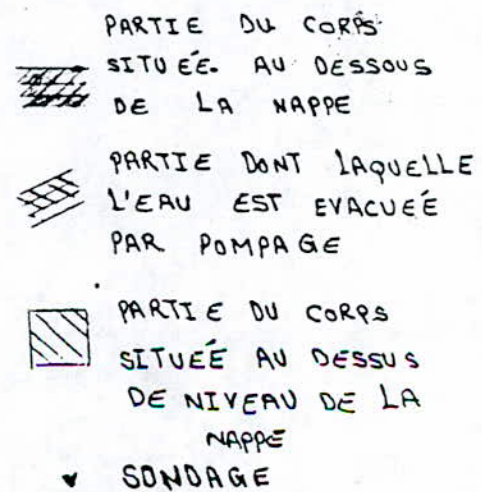 PARTIE DU CORPS
SITUÉE. AU DESSOUS
DE LA NAPPE
PARTIE DONT LAQUELLE
L'EAU EST EVACUEÉ
PAR POMPAGE
PARTIE DU CORPS
SITUEÉ AU DESSUS
DE NIVEAU DE LA
NAPPE
SONDAGE